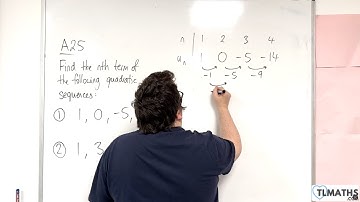 A25
Find the nth term of
the following quadratic
sequences:
① 1, 0, -5,
② 1, 3
n 1 2 3 4
uₙ 1 0 -5 -14
-1 -5 -9
TLMATHS